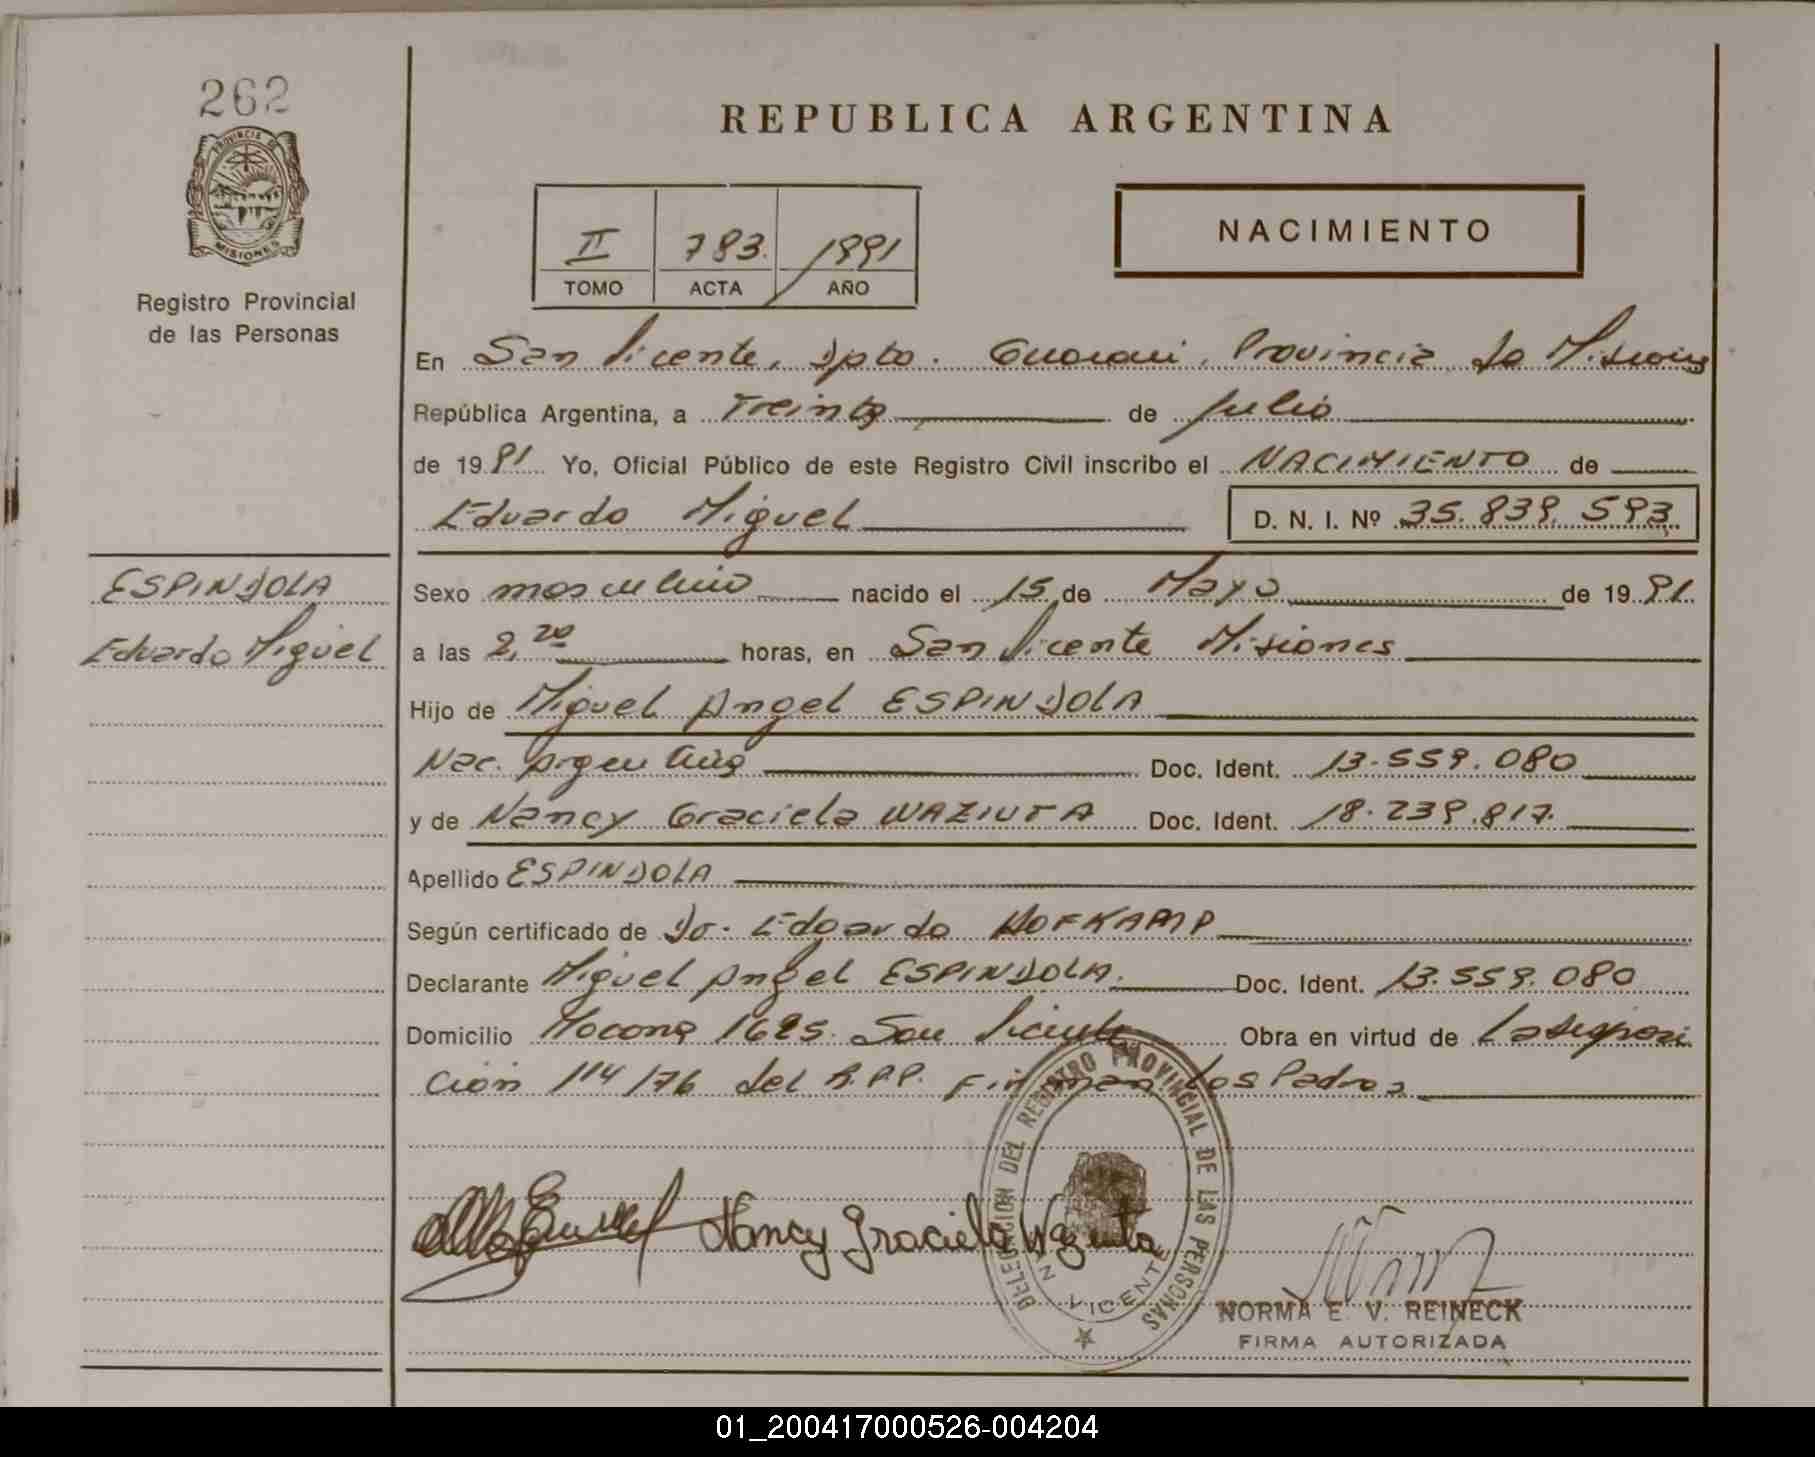 262
PROVINCIA DE
MISIONES
Registro Provincial
de las Personas
ESPINDOLA
Eduardo Miguel
REPUBLICA ARGENTINA
II 783. 1991
TOMO ACTA AÑO
NACIMIENTO
En San Vicente, Dpto. Guarani, Provincia de Misiones
República Argentina, a Treinta de Julio
de 1991 Yo, Oficial Público de este Registro Civil inscribo el NACIMIENTO de
Eduardo Miguel D. N. I. Nº 35.839.593
Sexo masculino nacido el 15 de Mayo de 1991
a las 2,20 horas, en San Vicente Misiones
Hijo de Miguel Angel ESPINDOLA
Nac. Argentina Doc. Ident. 13.559.080
y de Nancy Graciela WAZIUTA Doc. Ident. 18.239.817.
Apellido ESPINDOLA
Según certificado de Dr. Edgardo HOFKAMP
Declarante Miguel Angel ESPINDOLA. Doc. Ident. 13.559.080
Domicilio Mocona 1625. San Vicente Obra en virtud de La disposi
cion 114/76 del R.P.P. Firman Los Padres
Nancy Graciela Waziuta
DELEGACION DEL REGISTRO PROVINCIAL DE LAS PERSONAS
SAN VICENTE
NORMA E. V. REINECK
FIRMA AUTORIZADA
01_200417000526-004204